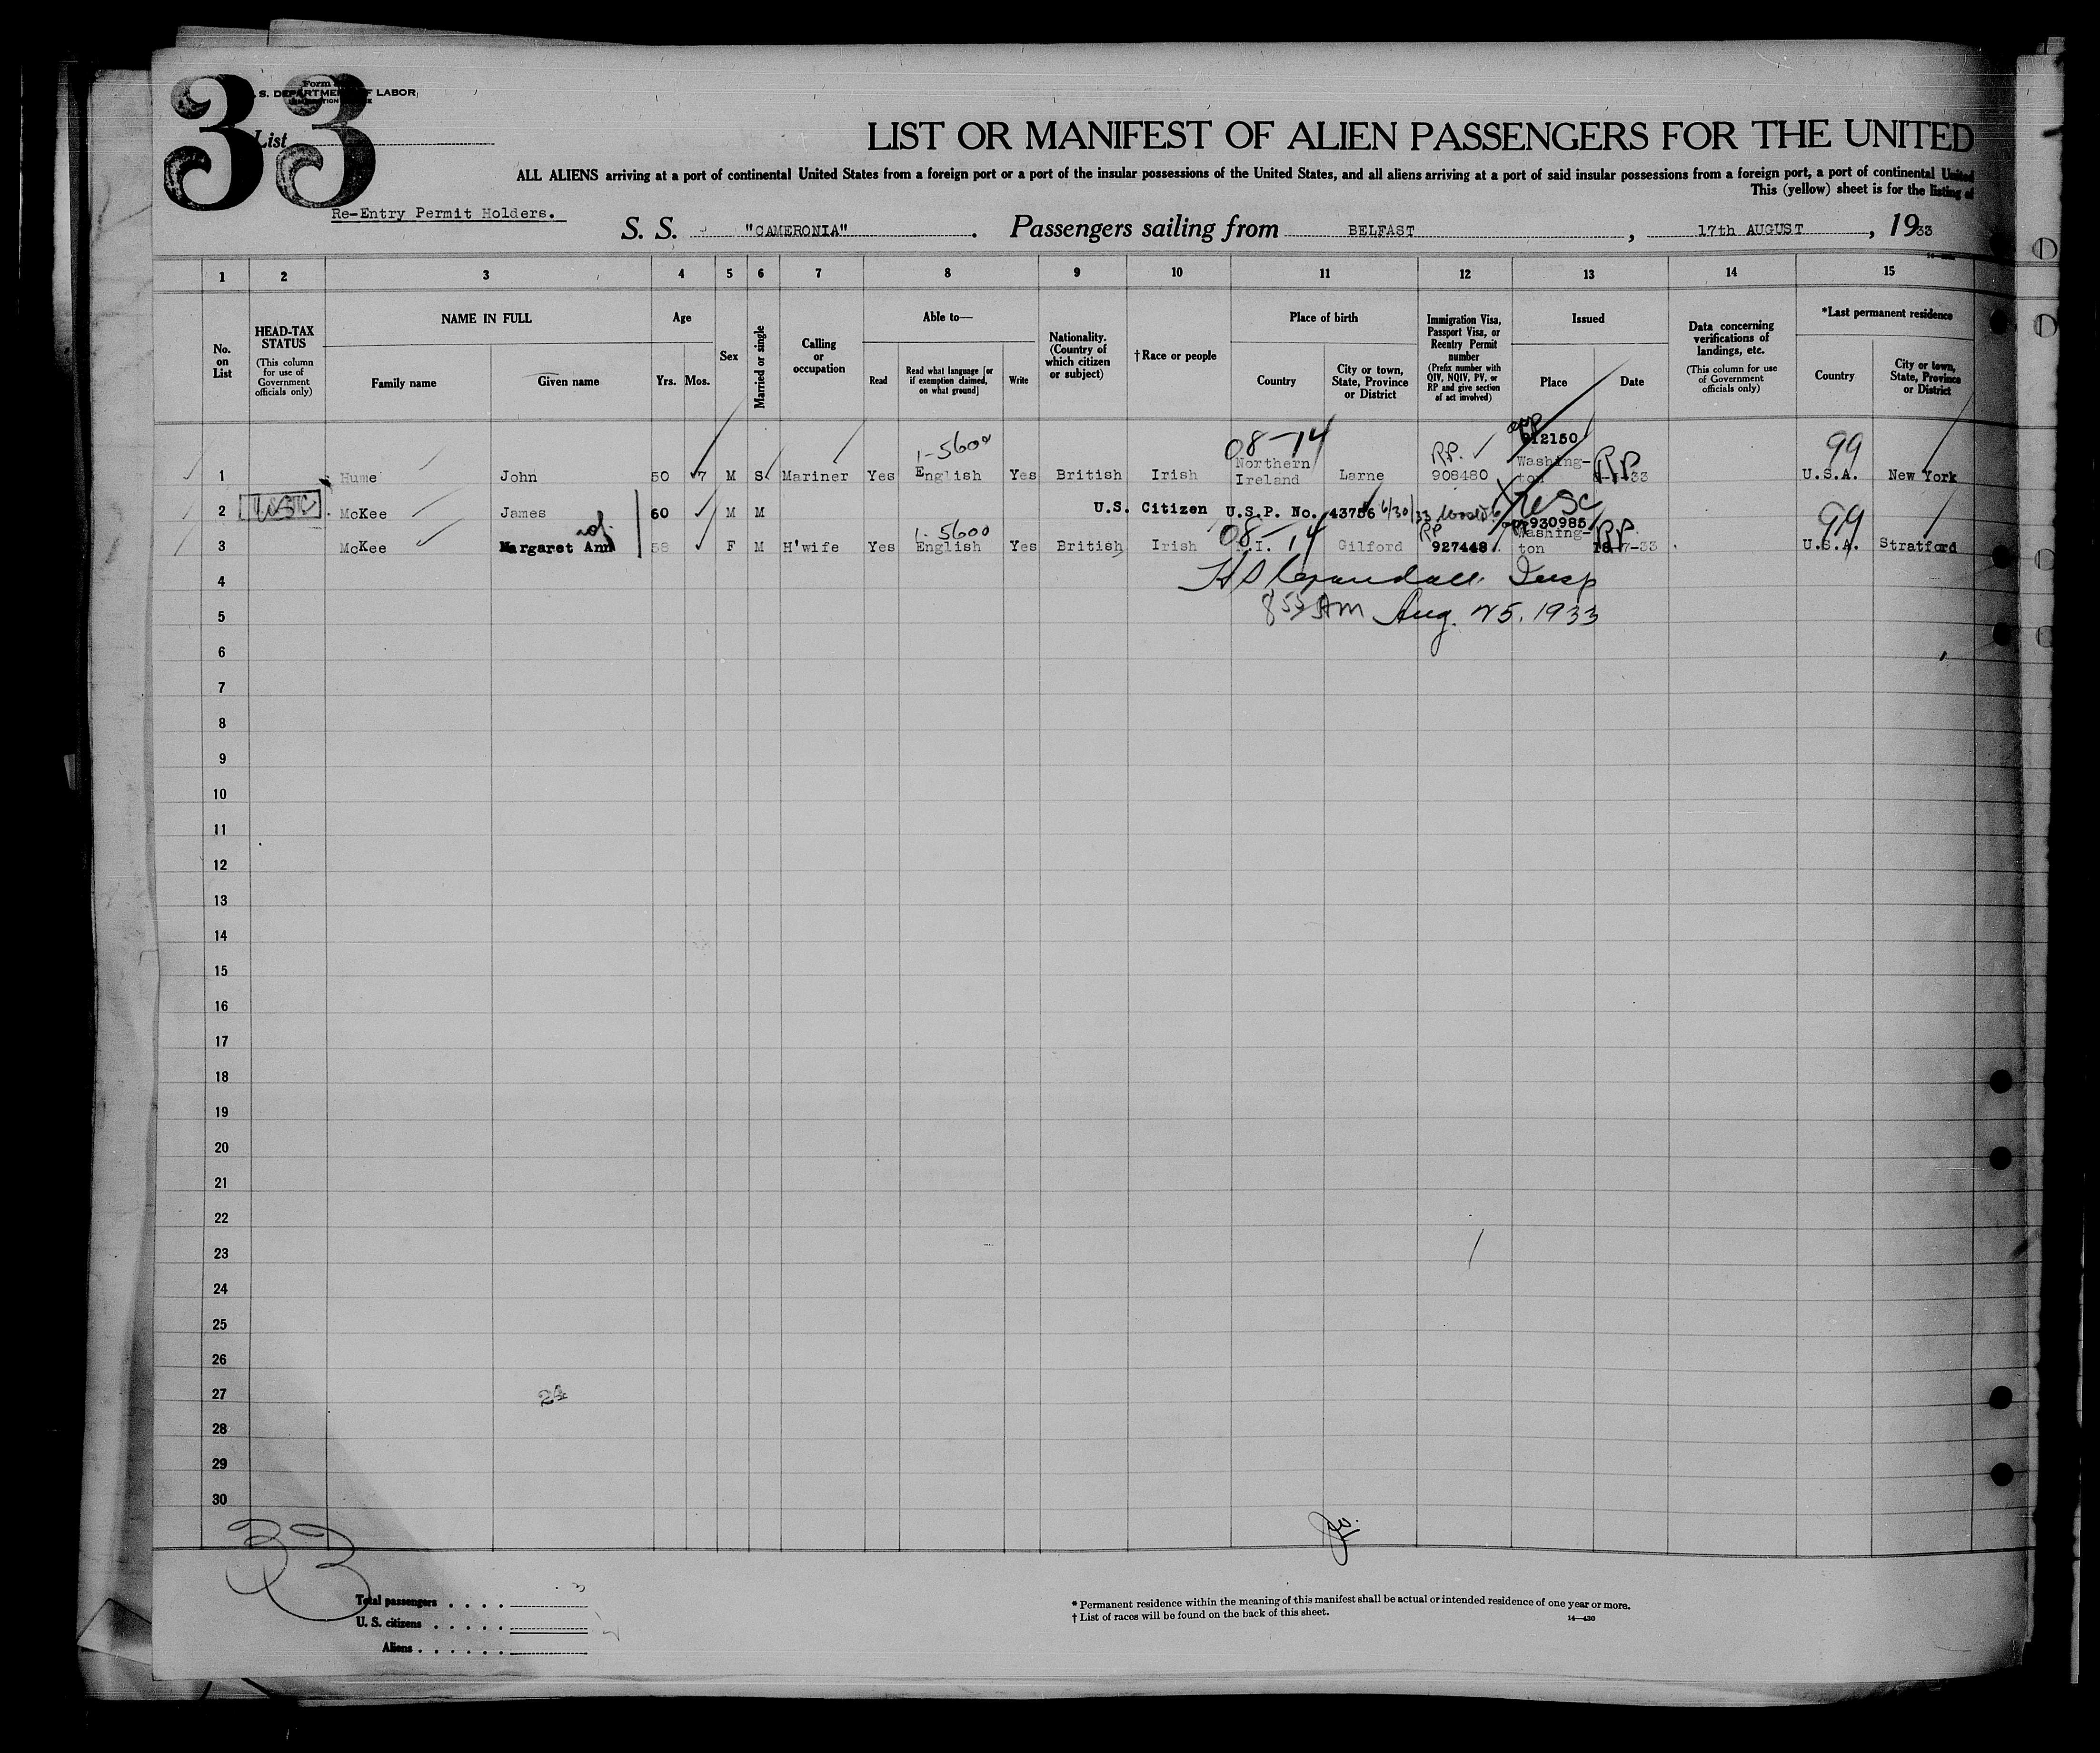 33
Form
S. DEPARTMENT OF LABOR
List
LIST OR MANIFEST OF ALIEN PASSENGERS FOR THE UNITED
ALL ALIENS arriving at a port of continental United States from a foreign port or a port of the insular possessions of the United States, and all aliens arriving at a port of said insular possessions from a foreign port, a port of continental United
This (yellow) sheet is for the listing of
Re-Entry Permit Holders.
S. S. "CAMERONIA". Passengers sailing from BELFAST, 17th AUGUST, 1933
1 2 3 4 5 6 7 8 9 10 11 12 13 14 15
No. on List
HEAD-TAX STATUS
(This column for use of Government officials only)
NAME IN FULL
Family name
Given name
Age
Yrs. Mos.
Sex
Married or single
Calling or occupation
Able to—
Read
Read what language [or if exemption claimed, on what ground]
Write
Nationality. (Country of which citizen or subject)
†Race or people
Place of birth
Country
City or town, State, Province or District
Immigration Visa, Passport Visa, or Reentry Permit number
(Prefix number with QIV, NQIV, PV, or RP and give section of act involved)
Issued
Place
Date
Data concerning verifications of landings, etc.
(This column for use of Government officials only)
*Last permanent residence
Country
City or town, State, Province or District
1-5600 08-14 RP. 912150 RP 99
1 Hume John 50 7 M S Mariner Yes English Yes British Irish Northern Ireland Larne 908480 Washington 33 U.S.A. New York
2 USC McKee James 60 M M U.S. Citizen U.S.P. No. 43756 6/30/33 USC
1-5600 08-14 RP 930985 RP 99
3 McKee Margaret Ann 58 F M H'wife Yes English Yes British Irish N.I. Gilford 927448 Washington 18-7-33 U.S.A. Stratford
4 Insp
5 8 53 AM Aug. 25. 1933
6
7
8
9
10
11
12
13
14
15
16
17
18
19
20
21
22
23
24
25
26
27 24
28
29
30
33
Total passengers . . . . 3
U. S. citizens . . . . .
Aliens . . . . . .
* Permanent residence within the meaning of this manifest shall be actual or intended residence of one year or more.
† List of races will be found on the back of this sheet.
14—430